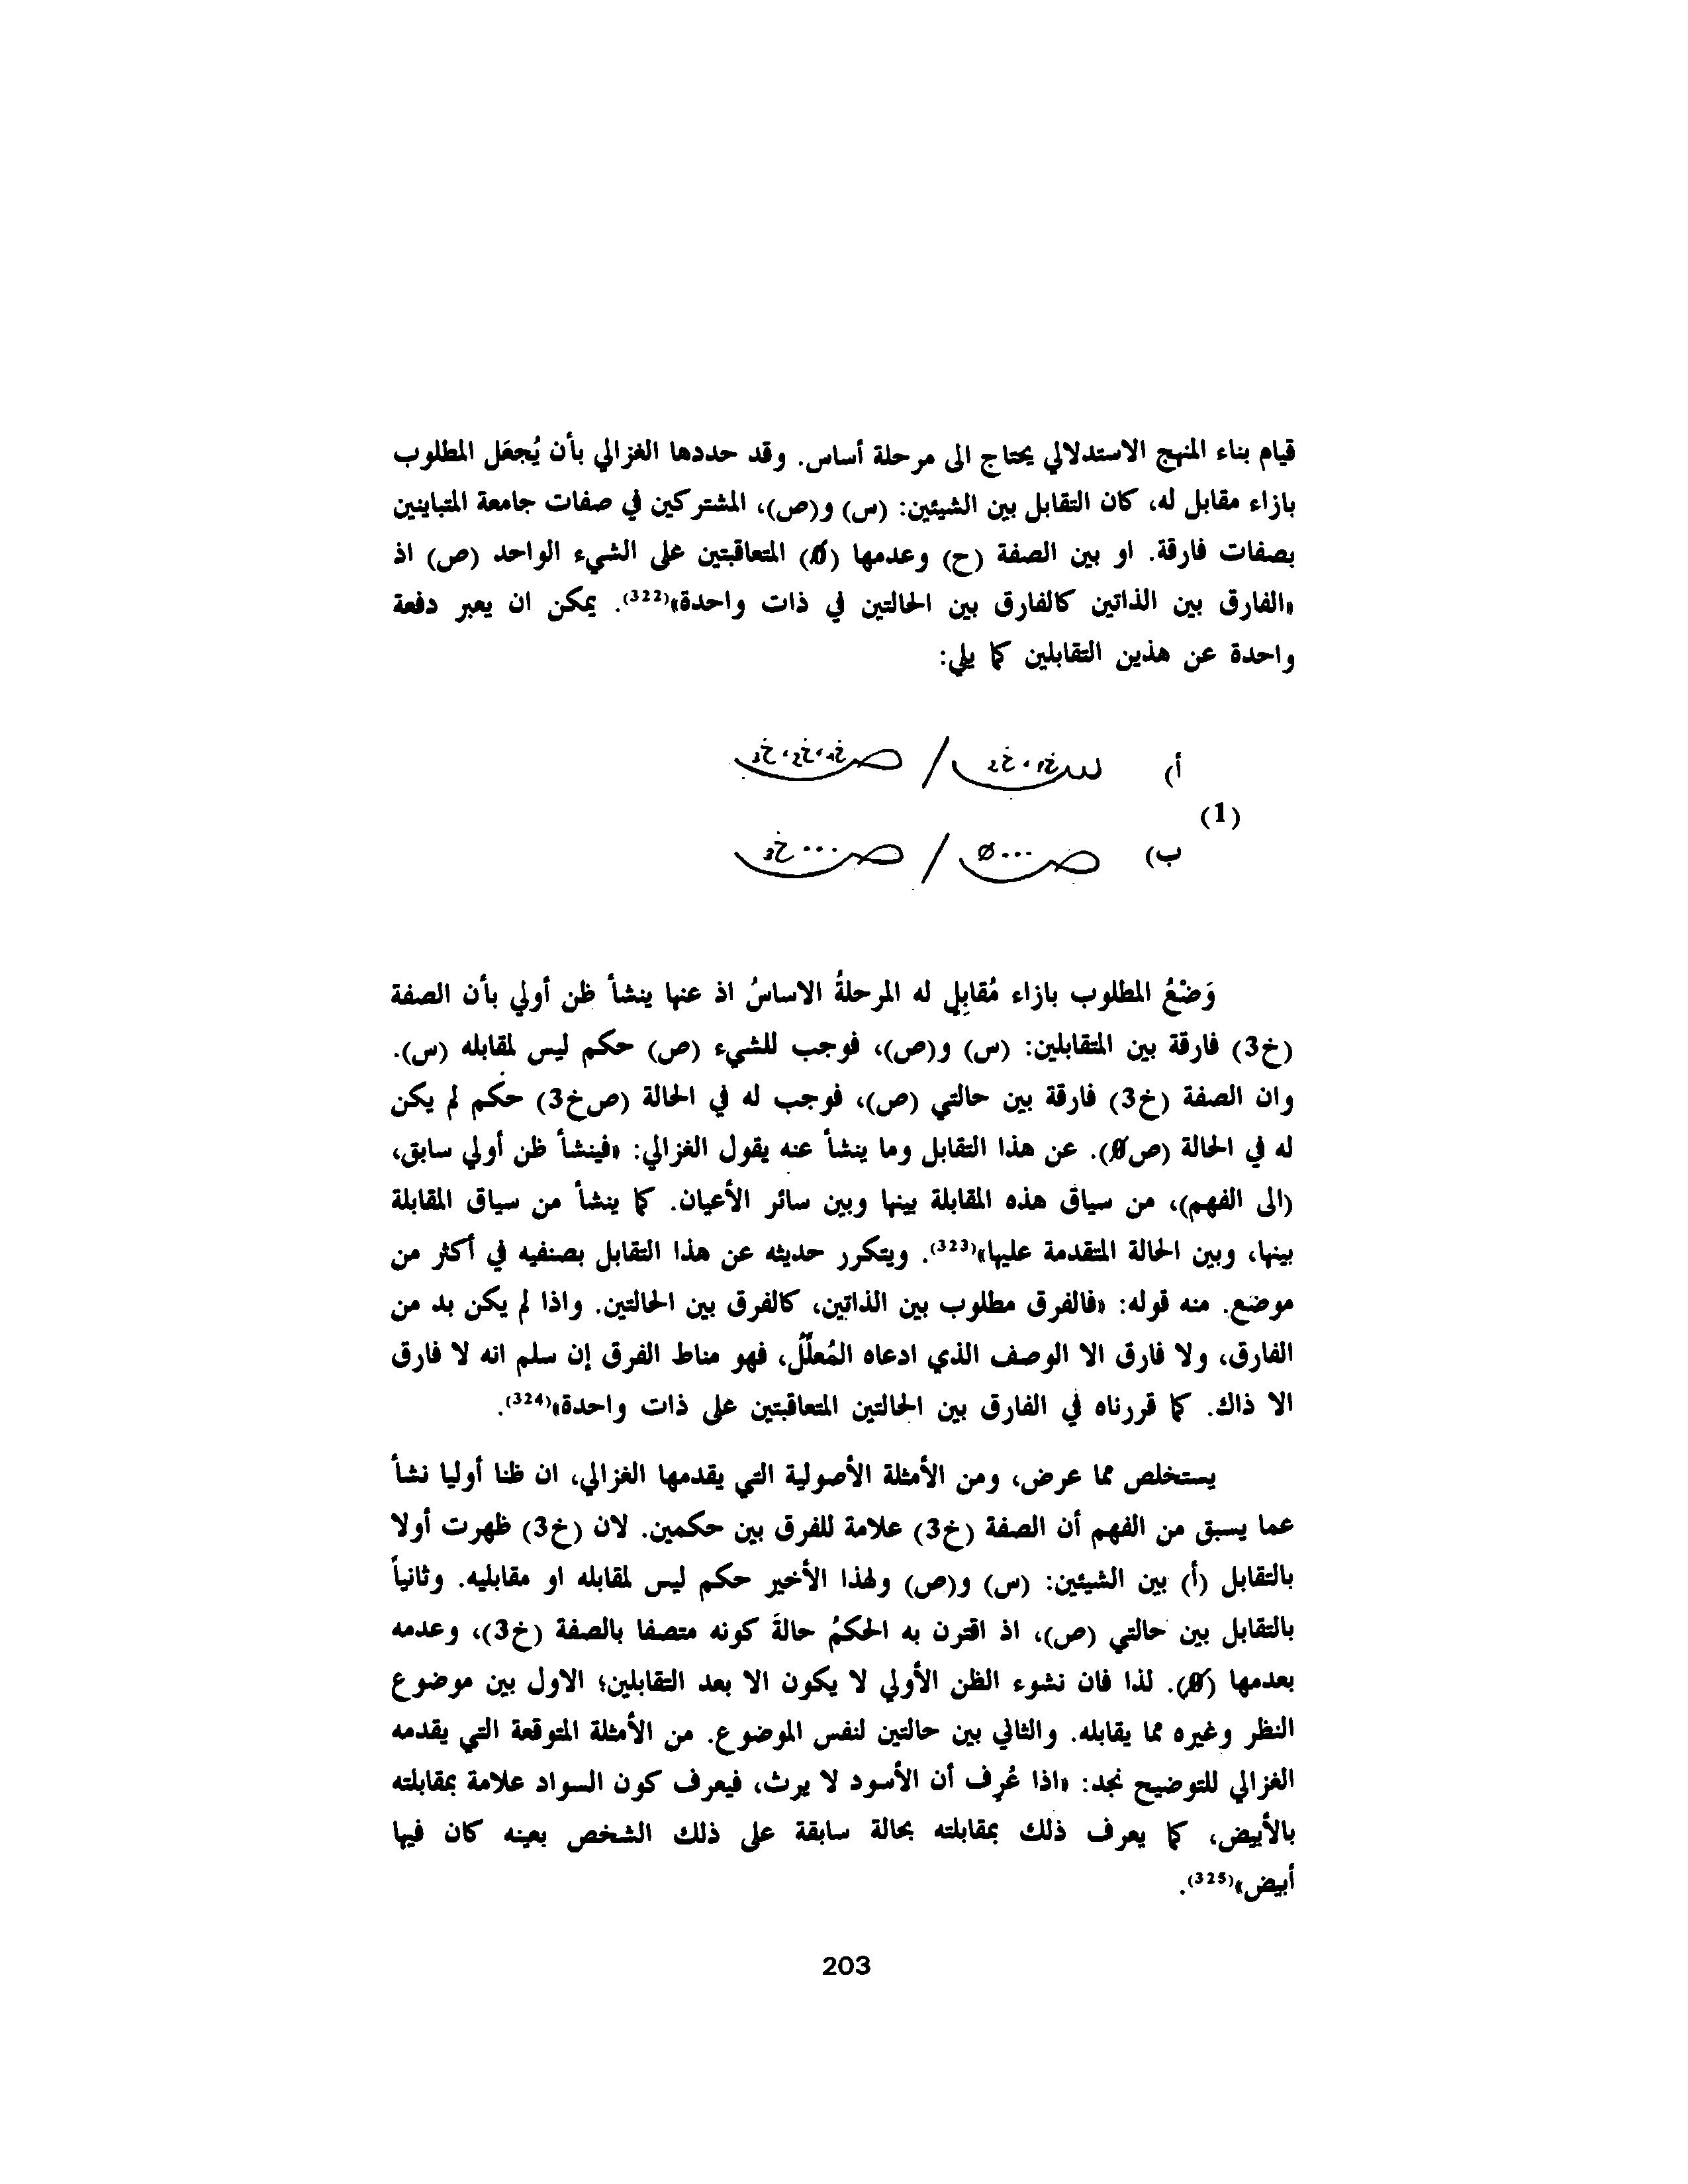 قيام بناء المنهج الاستدلالي يحتاج الى مرحلة أساس. وقد حددها الغزالي بأن يُجعَل المطلوب
بازاء مقابل له، كان التقابل بين الشيئين: (س) و(ص)، المشتركين في صفات جامعة المتباينين
بصفات فارقة. او بين الصفة (ح) وعدمها (Ø) المتعاقبتين على الشيء الواحد (ص) اذ
«الفارق بين الذاتين كالفارق بين الحالتين في ذات واحدة»(322). يمكن ان يعبر دفعة
واحدة عن هذين التقابلين كما يلي:
أ) س خ1، خ2 / ص خ1، خ2، خ3
(1)
ب) ص ...Ø / ص ...خ3
وَضْعُ المطلوب بازاء مُقابِلٍ له المرحلةُ الاساسُ اذ عنها ينشأ ظن أولي بأن الصفة
(خ3) فارقة بين المتقابلين: (س) و(ص)، فوجب للشيء (ص) حكم ليس لمقابله (س).
وان الصفة (خ3) فارقة بين حالتي (ص)، فوجب له في الحالة (ص خ3) حكم لم يكن
له في الحالة (ص Ø). عن هذا التقابل وما ينشأ عنه يقول الغزالي: «فينشأ ظن أولي سابق،
(الى الفهم)، من سياق هذه المقابلة بينها وبين سائر الأعيان. كما ينشأ من سياق المقابلة
بينها، وبين الحالة المتقدمة عليها»(323). ويتكرر حديثه عن هذا التقابل بصنفيه في أكثر من
موضع. منه قوله: «فالفرق مطلوب بين الذاتين، كالفرق بين الحالتين. واذا لم يكن بد من
الفارق، ولا فارق الا الوصف الذي ادعاه المُعلِّلُ، فهو مناط الفرق إن سلم انه لا فارق
الا ذاك. كما قررناه في الفارق بين الحالتين المتعاقبتين على ذات واحدة»(324).
يستخلص مما عرض، ومن الأمثلة الأصولية التي يقدمها الغزالي، ان ظنا أوليا نشأ
عما يسبق من الفهم أن الصفة (خ3) علامة للفرق بين حكمين. لان (خ3) ظهرت أولا
بالتقابل (أ) بين الشيئين: (س) و(ص) ولهذا الأخير حكم ليس لمقابله او مقابليه. وثانياً
بالتقابل بين حالتي (ص)، اذ اقترن به الحكمُ حالةَ كونه متصفا بالصفة (خ3)، وعدمه
بعدمها (Ø). لذا فان نشوء الظن الأولي لا يكون الا بعد التقابلين؛ الاول بين موضوع
النظر وغيره مما يقابله. والثاني بين حالتين لنفس الموضوع. من الأمثلة المتوقعة التي يقدمه
الغزالي للتوضيح نجد: «اذا عُرِف أن الأسود لا يرث، فيعرف كون السواد علامة بمقابلته
بالأبيض، كما يعرف ذلك بمقابلته بحالة سابقة على ذلك الشخص بعينه كان فيها
أبيض»(325).
203